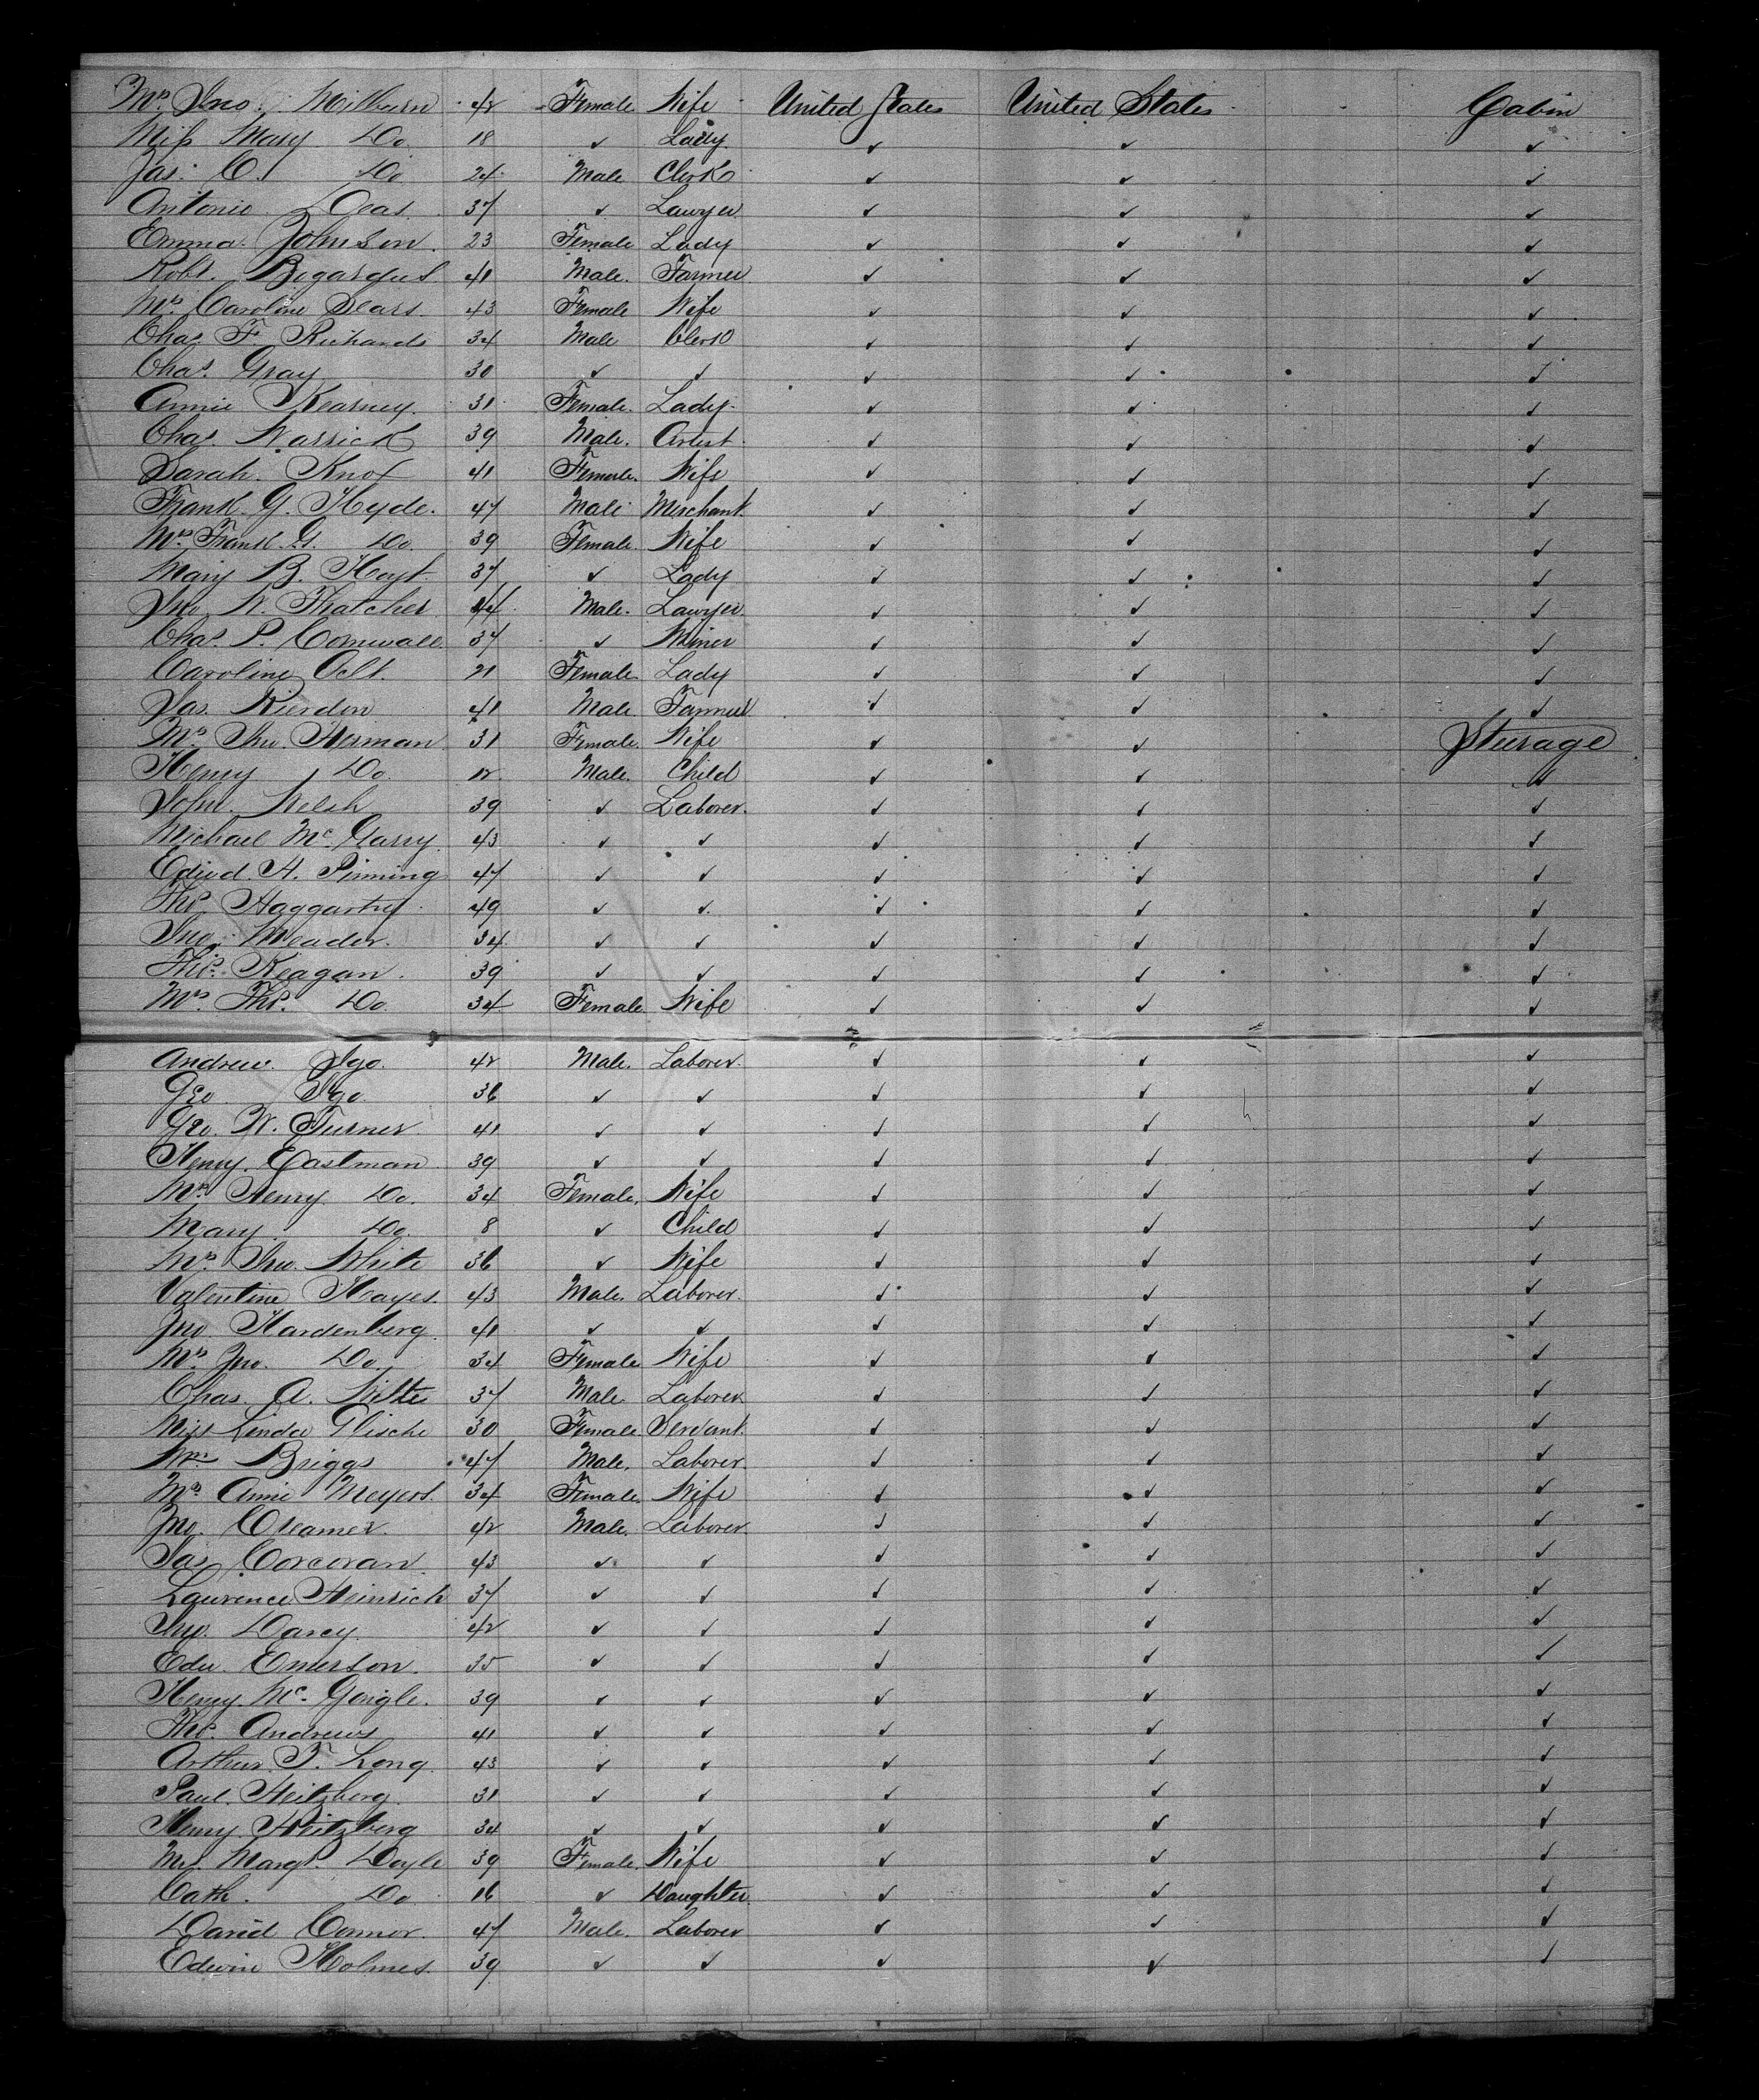 Mrs Jno. Milburn 42 Female Wife United States United States Cabin
Miss Mary Do. 18 ✓ Lady ✓ ✓ ✓
Jas. C. Do 24 Male Clerk ✓ ✓ ✓
Antonio Deas. 37 ✓ Lawyer ✓ ✓ ✓
Emma Johnson. 23 Female Lady ✓ ✓ ✓
Robt. Bogardus 41 Male. Farmer ✓ ✓ ✓
Mrs Caroline Sears. 43 Female Wife ✓ ✓ ✓
Chas F. Richards 34 Male Clerk ✓ ✓ ✓
Chas. Gray 30 ✓ ✓ ✓ ✓ ✓
Annie Kearney. 31 Female. Lady ✓ ✓ ✓
Chas. Warrick 39 Male. Artist ✓ ✓ ✓
Sarah. Knox 41 Female. Wife ✓ ✓ ✓
Frank. G. Hyde. 47 Male Merchant. ✓ ✓ ✓
Mrs Frank. G. Do. 39 Female. Wife ✓ ✓ ✓
Mary B. Hoyt 37 ✓ Lady ✓ ✓ ✓
Jno. W. Thatcher 44 Male. Lawyer. ✓ ✓ ✓
Chas. P. Cornwall. 37 ✓ Miner ✓ ✓ ✓
Caroline 21 Female. Lady ✓ ✓ ✓
Jas. Rierdon 41 Male. Farmer ✓ ✓ ✓
Mrs Jno. Herman 31 Female. Wife ✓ ✓ Steerage
Henry Do. 12 Male. Child ✓ ✓ ✓
John. Welsh 39 ✓ Laborer. ✓ ✓ ✓
Michael McGarry. 43 ✓ ✓ ✓ ✓ ✓
Edwd. A. Pinning 47 ✓ ✓ ✓ ✓ ✓
Thos Haggarty 49 ✓ ✓ ✓ ✓ ✓
Jno. Meader. 34 ✓ ✓ ✓ ✓ ✓
Thos. Reagan. 39 ✓ ✓ ✓ ✓ ✓
Mrs. Thos. Do. 34 Female Wife ✓ ✓ ✓
Andrew. Igo. 42 Male. Laborer. ✓ ✓ ✓
Geo. Igo. 36 ✓ ✓ ✓ ✓ ✓
Geo. W. Turner 41 ✓ ✓ ✓ ✓ ✓
Henry. Eastman 39 ✓ ✓ ✓ ✓ ✓
Mrs Henry. Do. 34 Female. Wife ✓ ✓ ✓
Mary. Do. 8 ✓ Child ✓ ✓ ✓
Mrs Jno. White 36 ✓ Wife ✓ ✓ ✓
Valentine Hayes. 43 Male. Laborer. ✓ ✓ ✓
Jno. Hardenberg. 41 ✓ ✓ ✓ ✓ ✓
Mrs Jno. Do. 34 Female Wife ✓ ✓ ✓
Chas. A. Wilte 37 Male. Laborer ✓ ✓ ✓
Miss Linda Plische 30 Female Servant. ✓ ✓ ✓
Wm Briggs 47 Male. Laborer. ✓ ✓ ✓
Mrs Annie Meyers. 34 Female. Wife ✓ ✓ ✓
Jno. Creamer. 42 Male. Laborer. ✓ ✓ ✓
Jas. Corcoran. 43 ✓ ✓ ✓ ✓ ✓
Lawrence Heinrich 37 ✓ ✓ ✓ ✓ ✓
Jno. Darcy. 42 ✓ ✓ ✓ ✓ ✓
Edw. Emerson. 35 ✓ ✓ ✓ ✓ ✓
Henry. Mc. Gonigle. 39 ✓ ✓ ✓ ✓ ✓
Thos. Andrews 41 ✓ ✓ ✓ ✓ ✓
Arthur. T. Long. 43 ✓ ✓ ✓ ✓ ✓
Paul. Heitzberg. 31 ✓ ✓ ✓ ✓ ✓
Henry Heitzberg 34 ✓ ✓ ✓ ✓ ✓
Mrs. Margt. Doyle 39 Female. Wife ✓ ✓ ✓
Cath. Do 16 ✓ Daughter ✓ ✓ ✓
David Connor. 47 Male. Laborer ✓ ✓ ✓
Edwin Holmes. 39 ✓ ✓ ✓ ✓ ✓